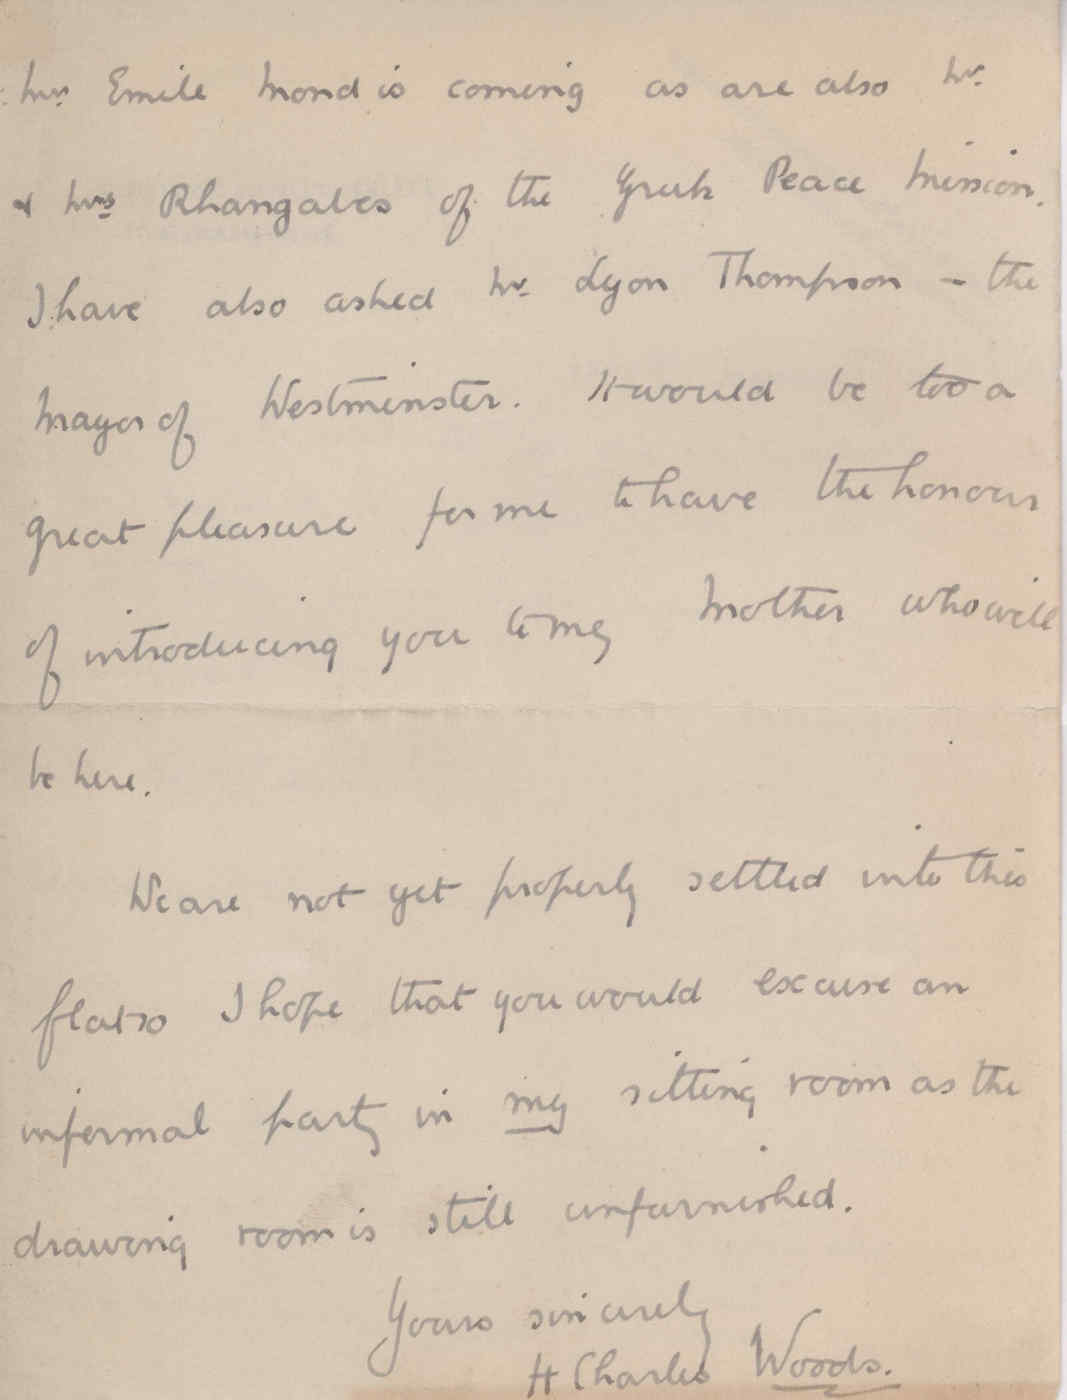 Mrs Emile Mond is coming as are also Mr.
& Mrs Rhangabes of the Greek Peace Mission.
I have also asked Mr. Lyon Thompson - the
Mayor of Westminster. It would be too a
great pleasure for me to have the honour
of introducing you to my Mother who will
be here.
We are not yet properly settled into this
flat so I hope that you would excuse an
informal party in my sitting room as the
drawing room is still unfurnished.
Yours sincerely
H Charles Woods.